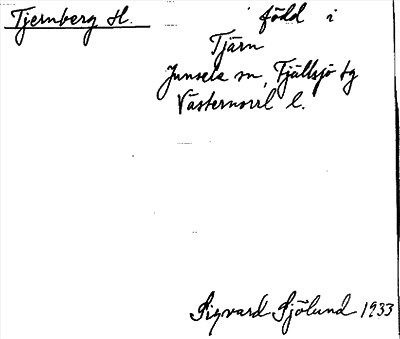 Tjernberg H. född i
Tjärn
Junsele sn, Fjällsjö tg
Västernorrl l.
Sigvard Sjölund 1933